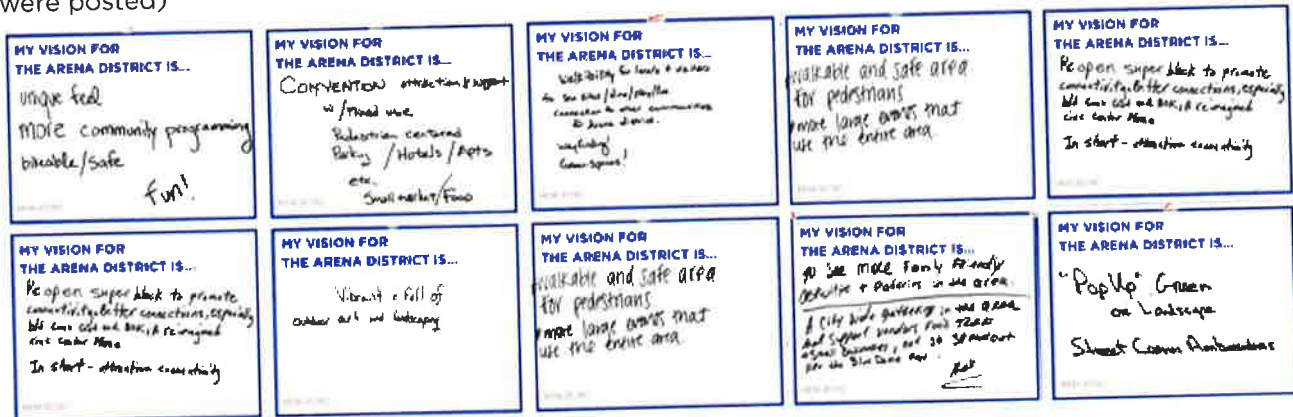 were posted)
MY VISION FOR
THE ARENA DISTRICT IS...
unique feel
more community programming
bikeable/safe
fun!
MY VISION FOR
THE ARENA DISTRICT IS...
CONVENTION attraction & support
w/ mixed use
Pedestrian centered
Parking / Hotels / Apts
etc.
Small market/Food
MY VISION FOR
THE ARENA DISTRICT IS...
Walkability for locals + visitors
to see sites/dine/
connection to other communities
to Arena district.
wayfinding!
Green Spaces!
MY VISION FOR
THE ARENA DISTRICT IS...
walkable and safe area
for pedestrians
more large events that
use the entire area.
MY VISION FOR
THE ARENA DISTRICT IS...
Reopen super block to promote
connectivity, better connections, especially
and BOK, A reimagined
civic center Plaza
In short - attraction connectivity
MY VISION FOR
THE ARENA DISTRICT IS...
Reopen super block to promote
connectivity, better connections, especially
and BOK, A reimagined
civic center Plaza
In short - attraction connectivity
MY VISION FOR
THE ARENA DISTRICT IS...
Vibrant & full of
outdoor art and landscaping
MY VISION FOR
THE ARENA DISTRICT IS...
walkable and safe area
for pedestrians
more large events that
use the entire area.
MY VISION FOR
THE ARENA DISTRICT IS...
to see more Family Friendly
in the area.
A City wide gathering in the area
that support vendors Food
small business, and
the Blue Dome
MY VISION FOR
THE ARENA DISTRICT IS...
"Pop Up" Green
on Landscape
Street Ambassadors